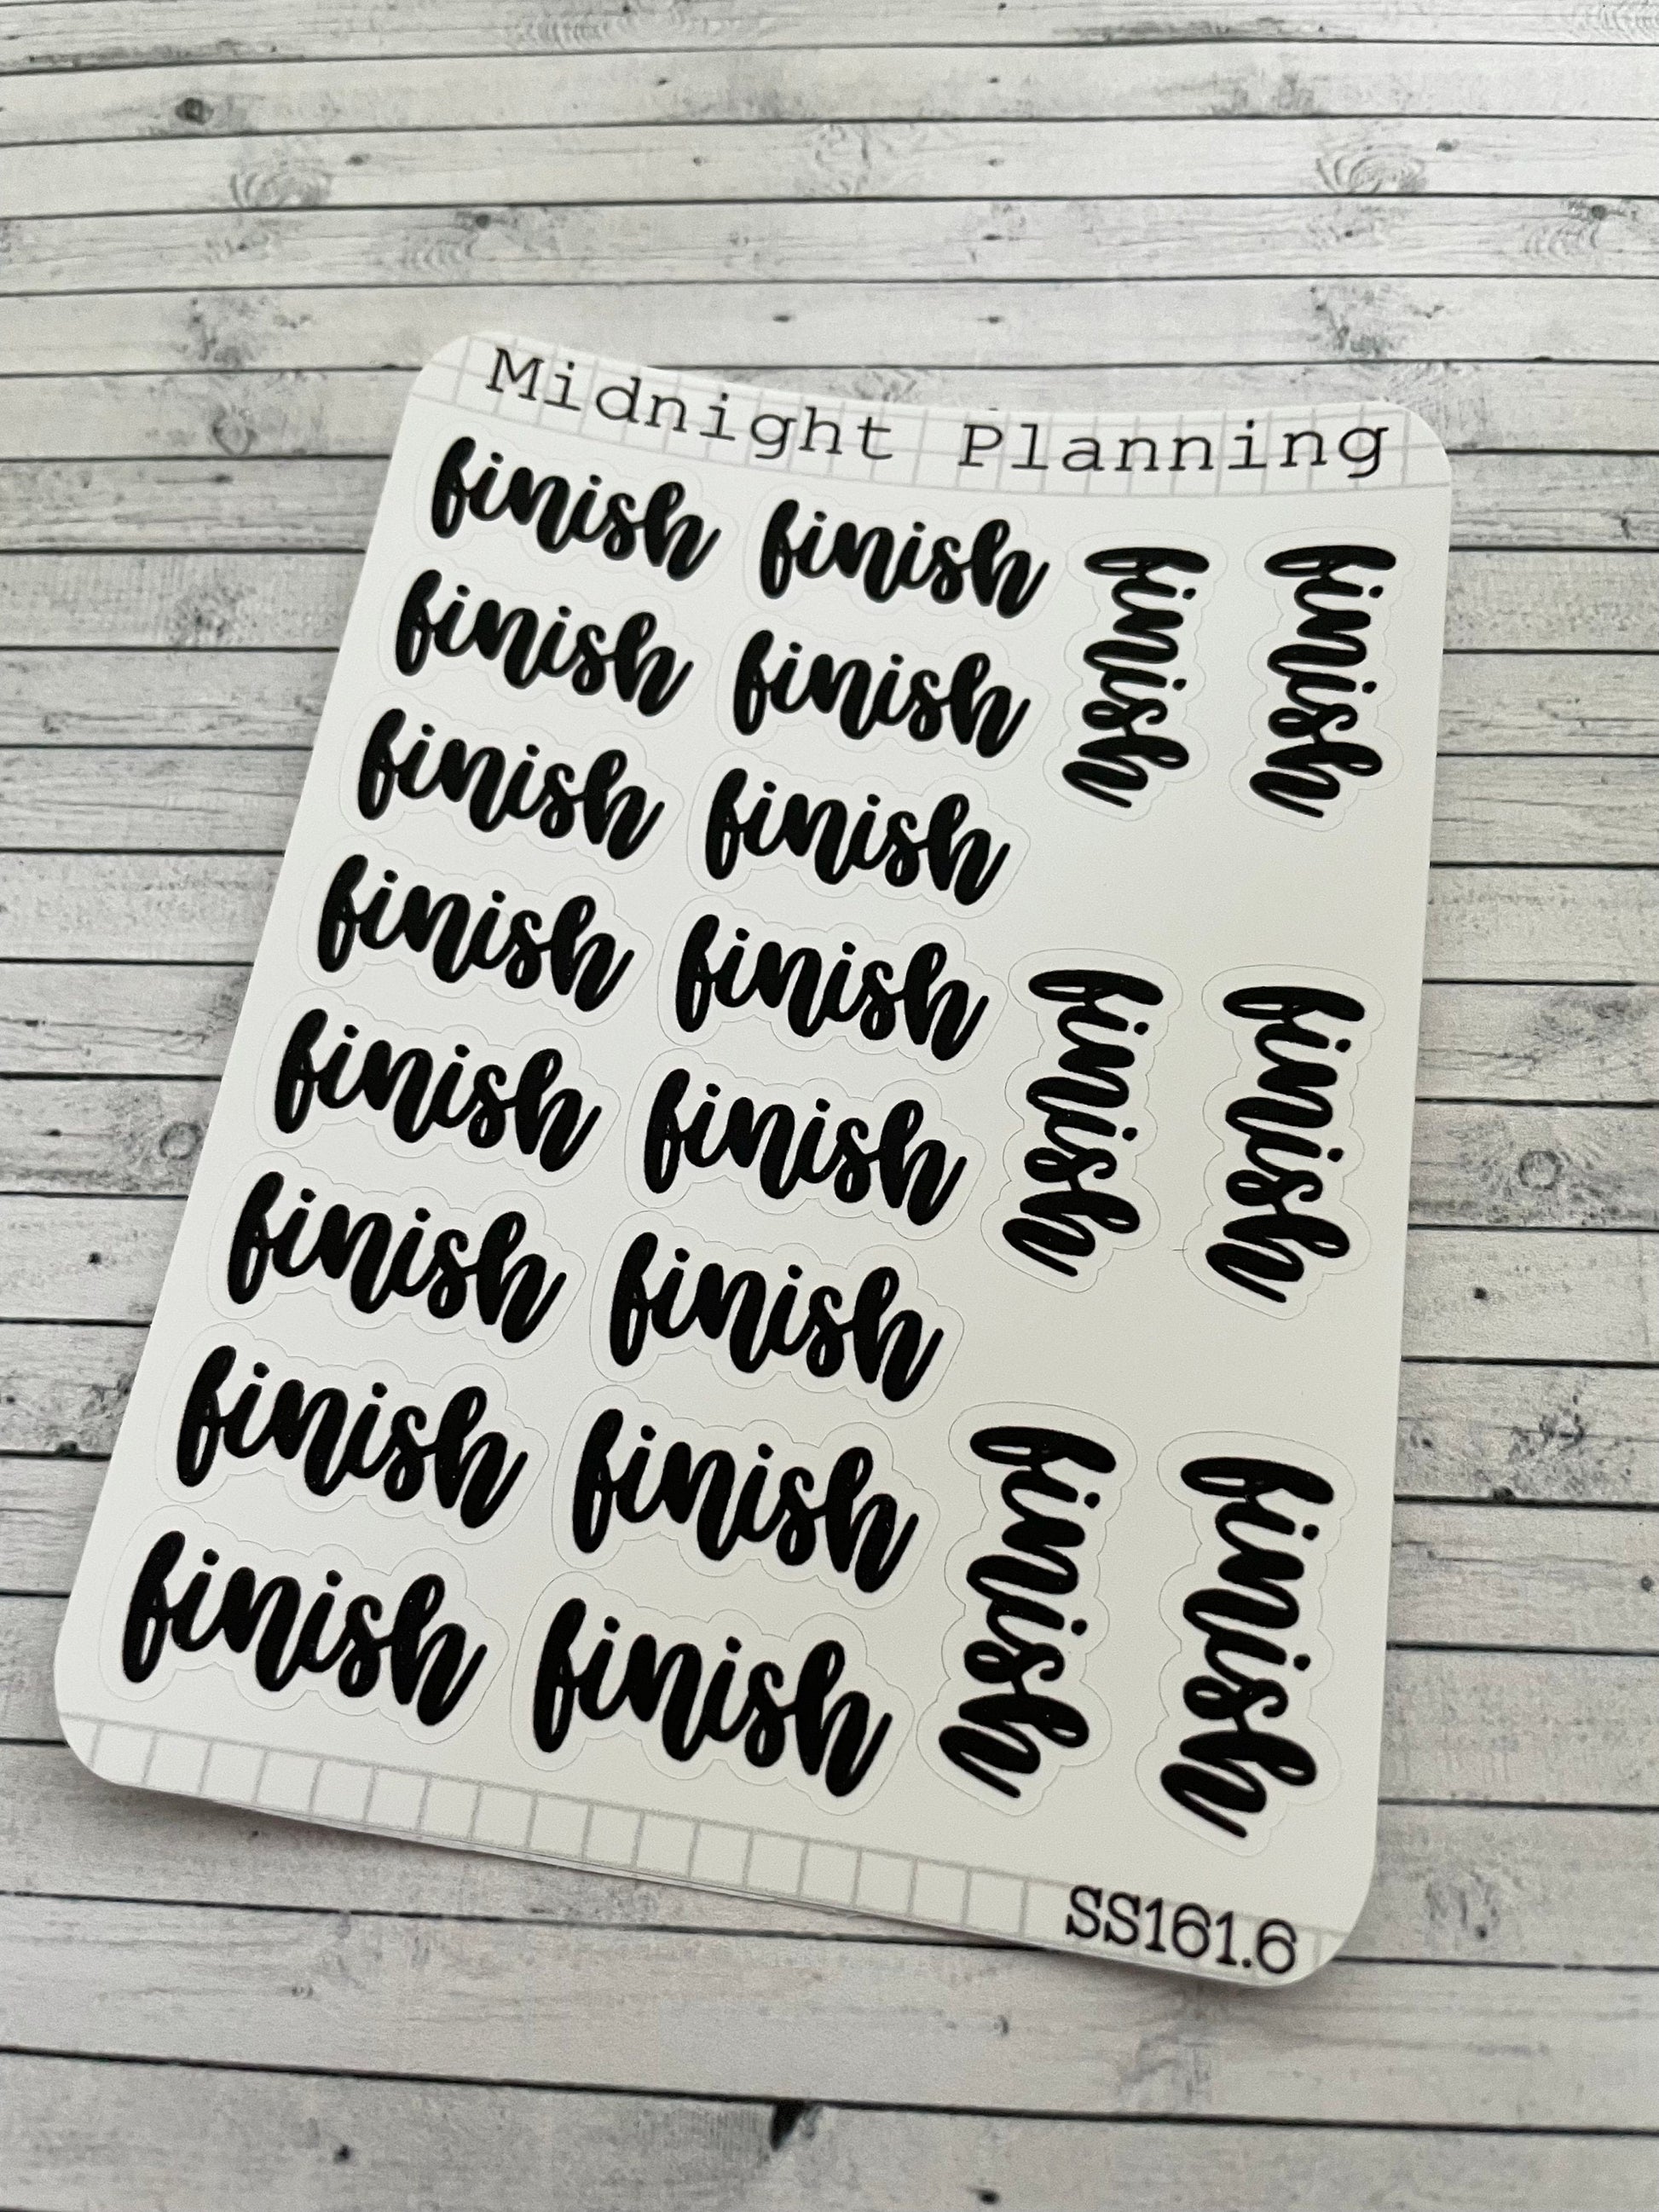 Midnight Planning
finish finish finish finish
finish finish
finish finish
finish finish finish finish
finish finish
finish finish
finish finish finish finish
finish finish
SS161.6